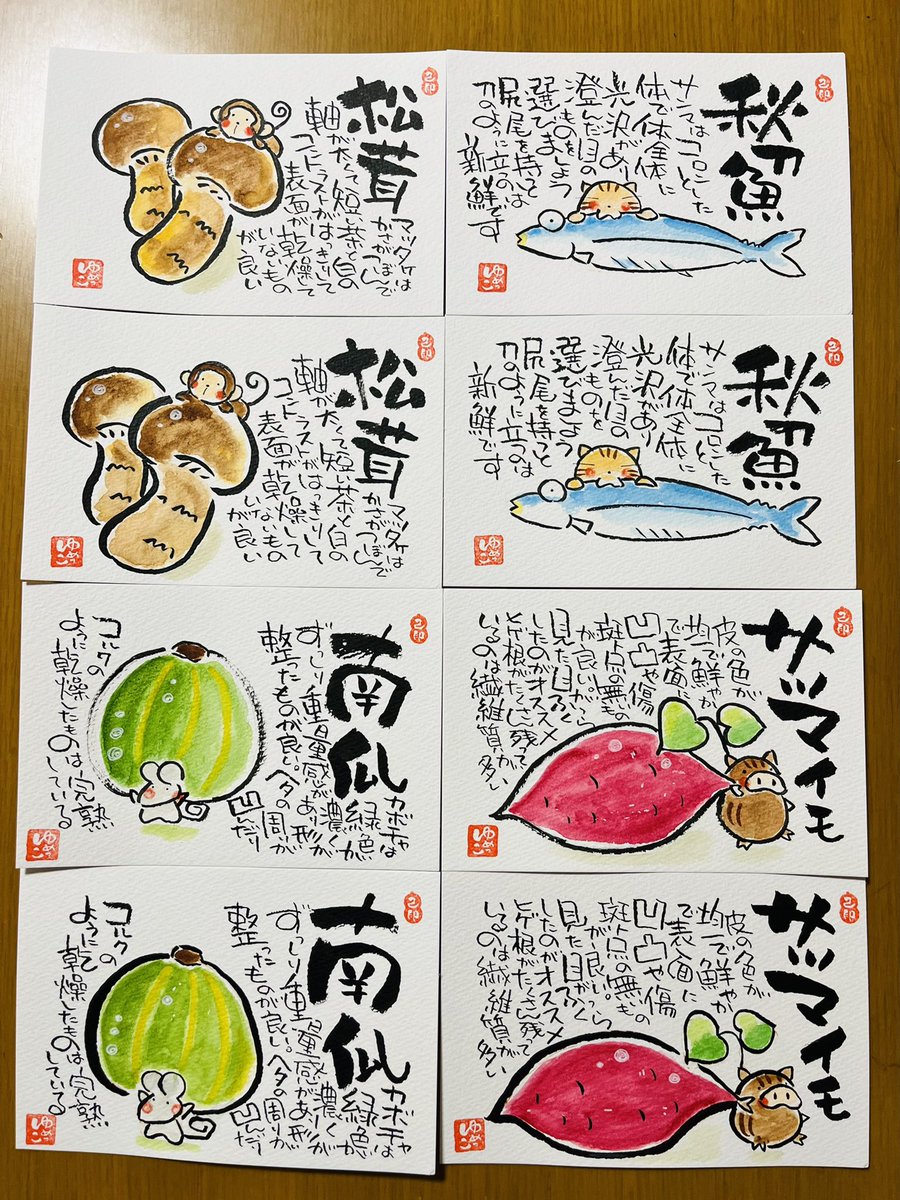 松茸
マツタケは
かさがつぼんで
軸が太くて短い茶と白の
コントラストがはっきりして
表面が乾燥して
いないもの
が良い
秋刀魚
サンマはコロンとした
体で体全体に
光沢があり
澄んだ目の
ものを
選びましょう
尻尾を持って
刀のように立つのは
新鮮です
松茸
マツタケは
かさがつぼんで
軸が太くて短い茶と白の
コントラストがはっきりして
表面が乾燥して
いないもの
が良い
秋刀魚
サンマはコロンとした
体で体全体に
光沢があり
澄んだ目の
ものを
選びましょう
尻尾を持つと
刀のように立つのは
新鮮です
南瓜
カボチャは
緑色が
濃く
ずっしり重量感があり形が
整ったものが良い。ヘタの周りが
凹んだり
コルクの
ように乾燥したものは完熟
している
サツマイモ
皮の色が
均一で鮮やか
で表面に
凹凸や傷
斑点の無いもの
が良い。
見た目
したのがオススメ
ヒゲ根がたくさん残って
いるのは繊維質が多い
南瓜
カボチャは
緑色が
濃く
ずっしり重量感があり形が
整ったものが良い。ヘタの周りが
凹んだり
コルクの
ように乾燥したものは完熟
している
サツマイモ
皮の色が
均一で鮮やか
で表面に
凹凸や傷
斑点の無いもの
が良い
見た目
したのがオススメ
ヒゲ根がたくさん残って
いるのは繊維質が多い